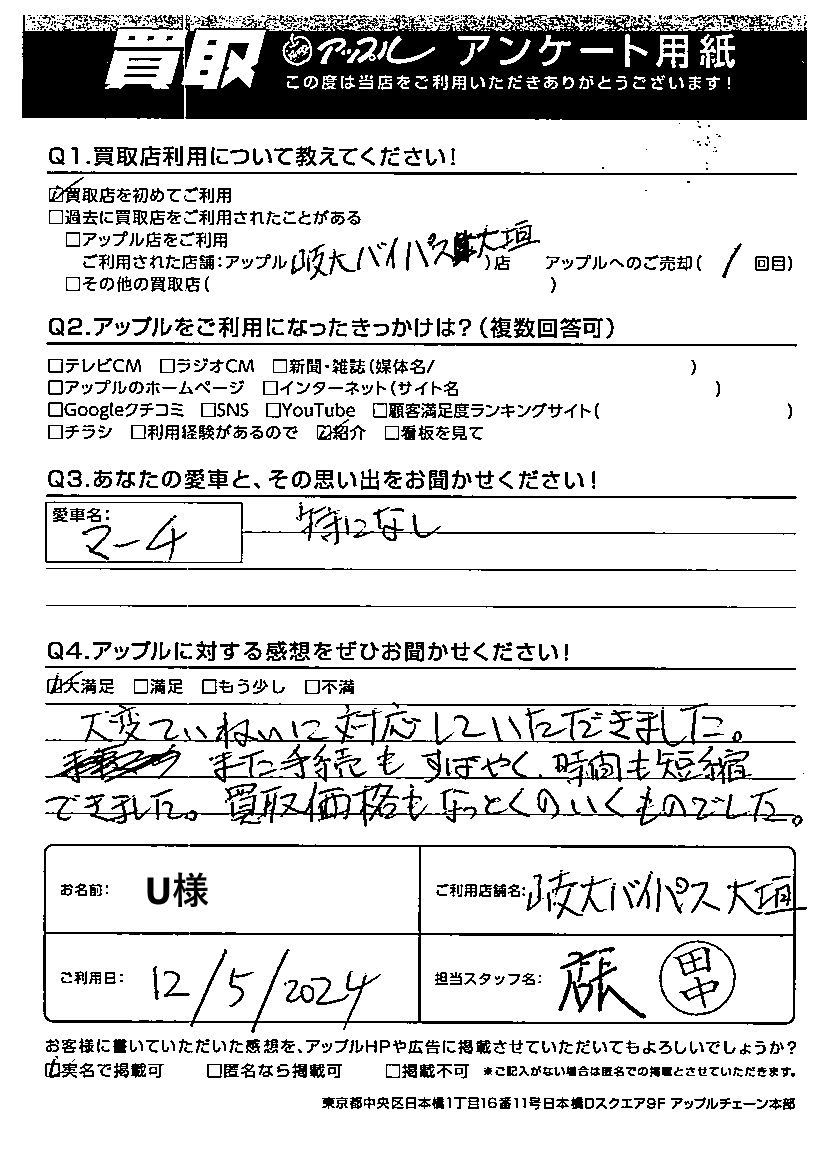 買取 アップル アンケート用紙
この度は当店をご利用いただきありがとうございます!
Q1.買取店利用について教えてください!
☑買取店を初めてご利用
□過去に買取店をご利用されたことがある
□アップル店をご利用
ご利用された店舗:アップル(岐大バイパス大垣)店 アップルへのご売却( 1 回目)
□その他の買取店( )
Q2.アップルをご利用になったきっかけは?(複数回答可)
□テレビCM □ラジオCM □新聞・雑誌(媒体名/ )
□アップルのホームページ □インターネット(サイト名 )
□Googleクチコミ □SNS □YouTube □顧客満足度ランキングサイト( )
□チラシ □利用経験があるので ☑紹介 □看板を見て
Q3.あなたの愛車と、その思い出をお聞かせください!
愛車名:
マーチ 特になし
Q4.アップルに対する感想をぜひお聞かせください!
☑大満足 □満足 □もう少し □不満
大変ていねいに対応していただきました。
また手続もすばやく、時間も短縮
できました。買取価格もなっとくのいくものでした。
お名前: U様 ご利用店舗名: 岐大バイパス大垣
ご利用日: 12/5/2024 担当スタッフ名: 田中
お客様に書いていただいた感想を、アップルHPや広告に掲載させていただいてもよろしいでしょうか?
☑実名で掲載可 □匿名なら掲載可 □掲載不可 *ご記入がない場合は匿名での掲載とさせていただきます。
東京都中央区日本橋1丁目16番11号日本橋Dスクエア9F アップルチェーン本部